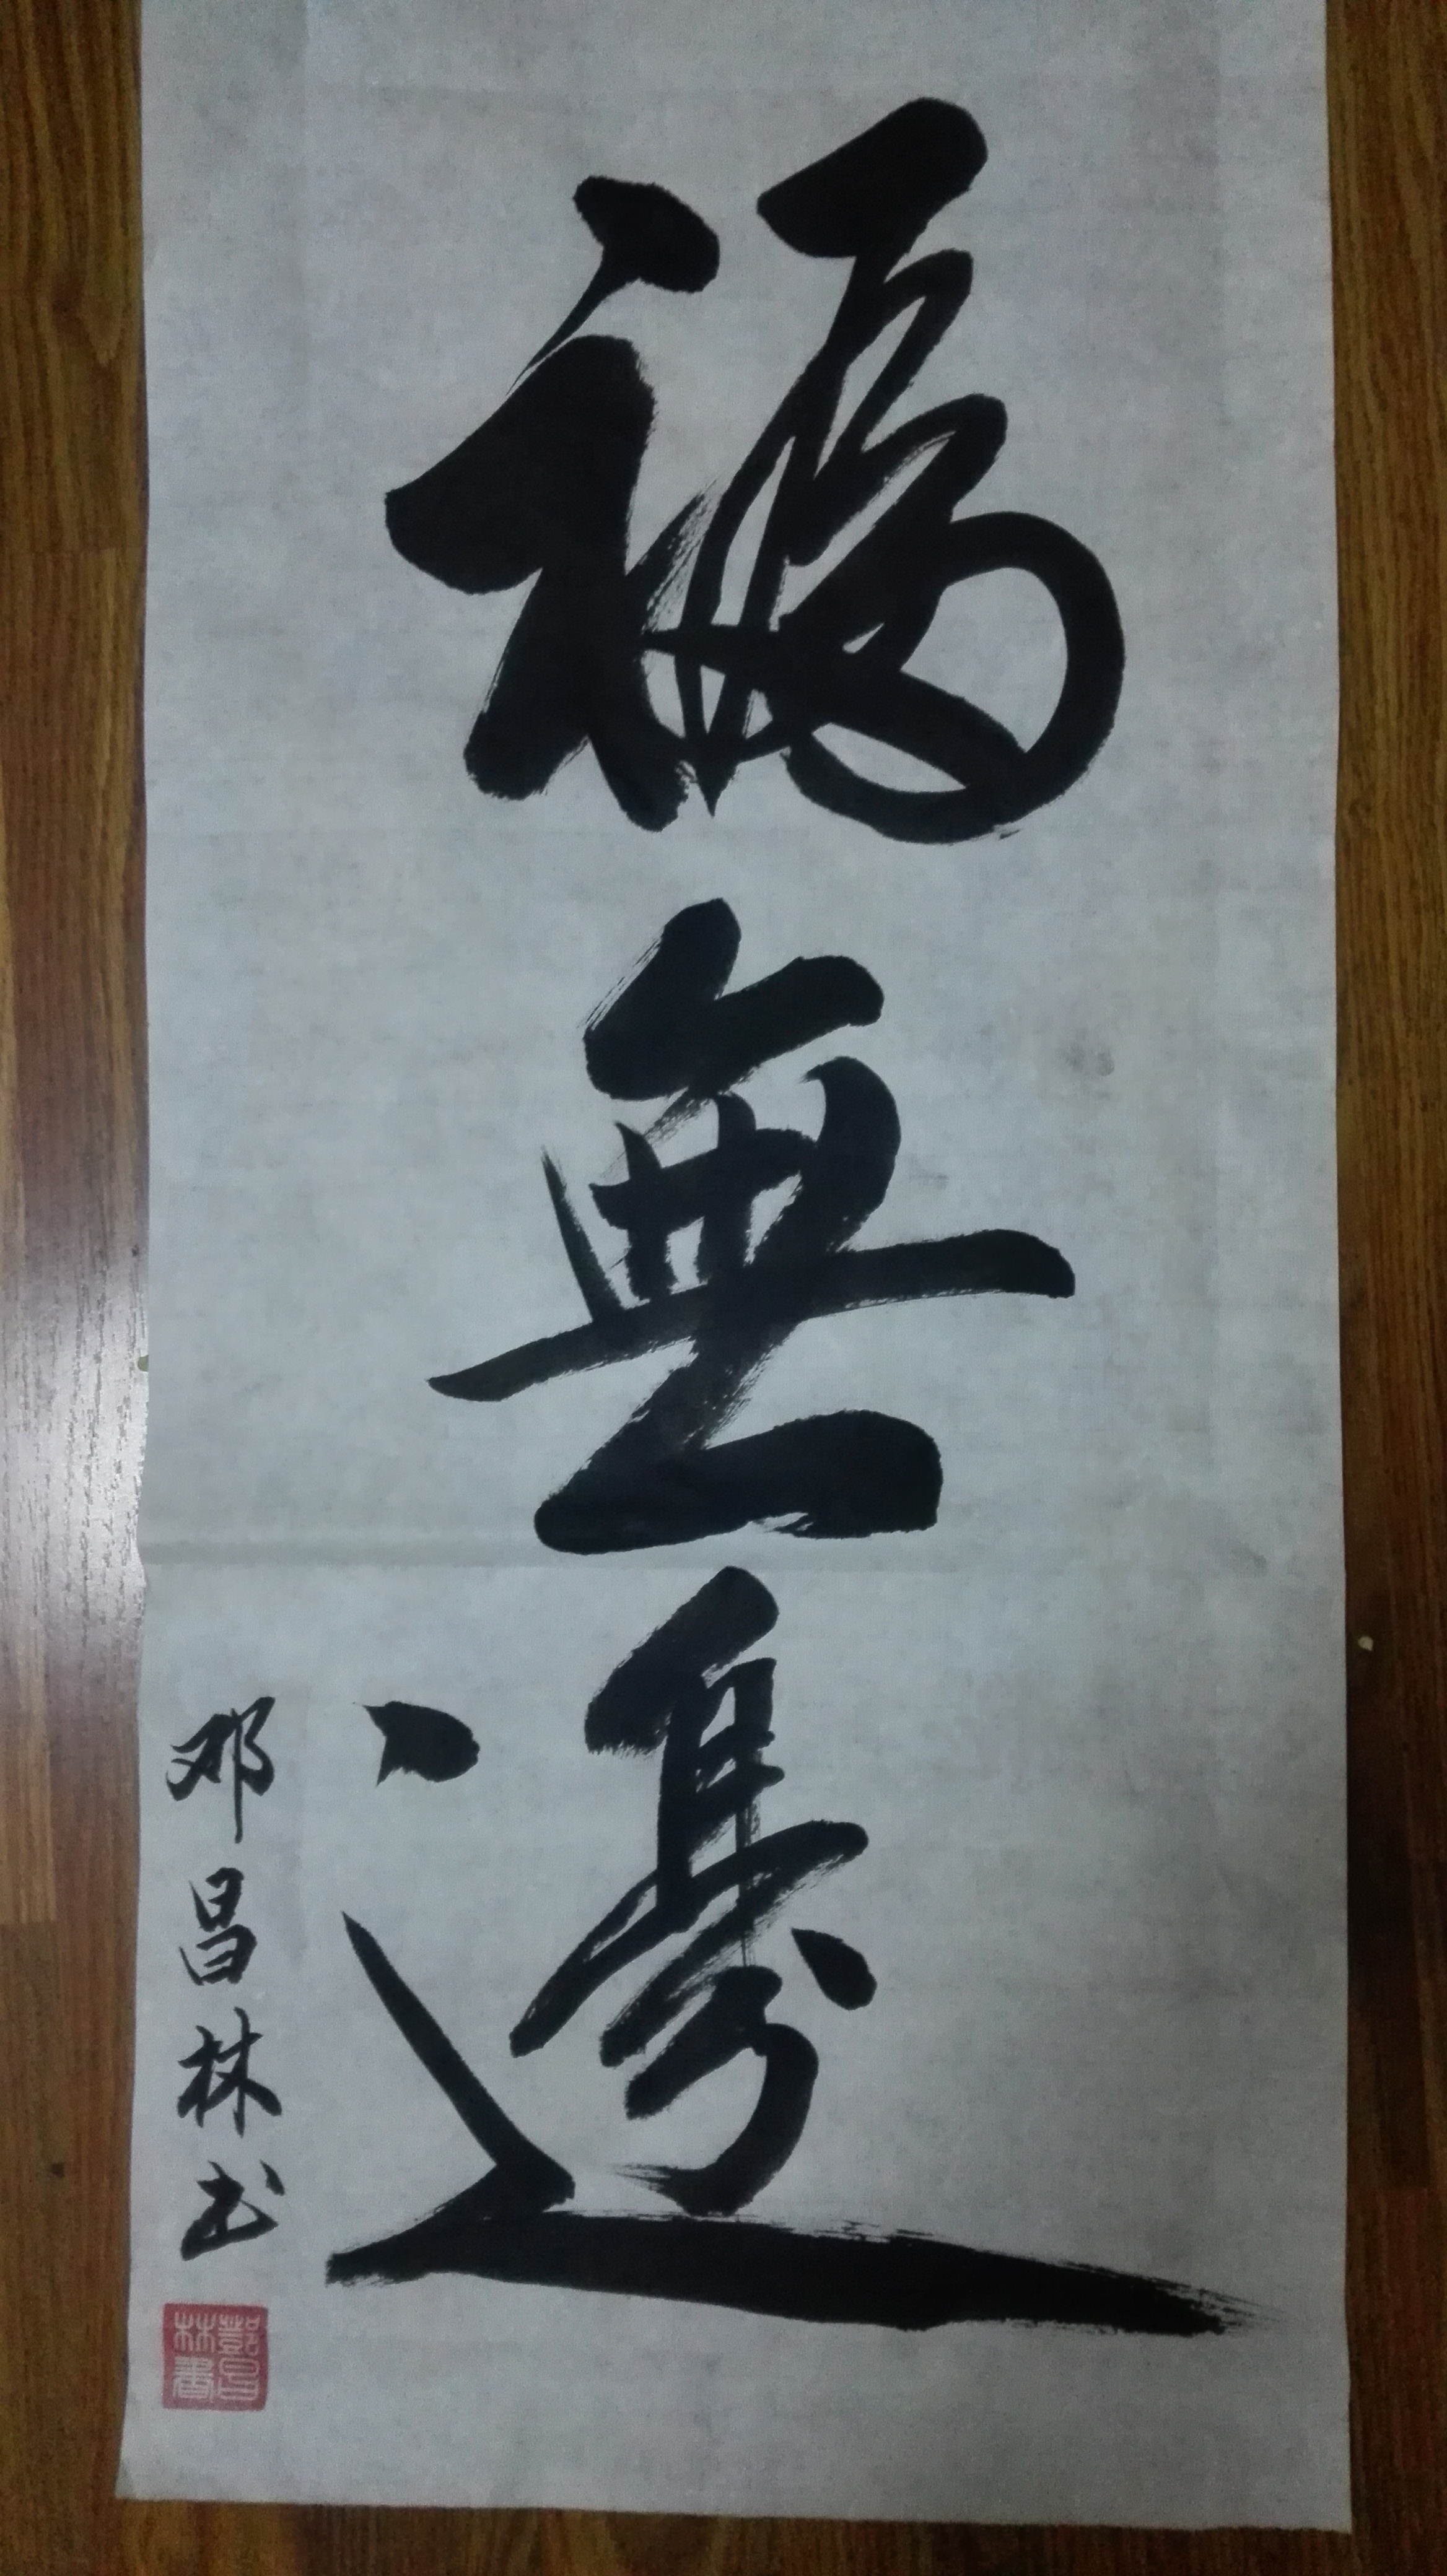 福無邊
邓昌林书
鄧昌林書